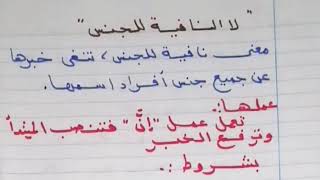 "لا النافية للجنس"
معنى نافية للجنس، تنفى خبرها
عن جميع جنس أفراد اسمها.
عملها:
تعمل عمل "إنَّ" فتنصب المبتدأ
وترفع الخبر
بشروط :.